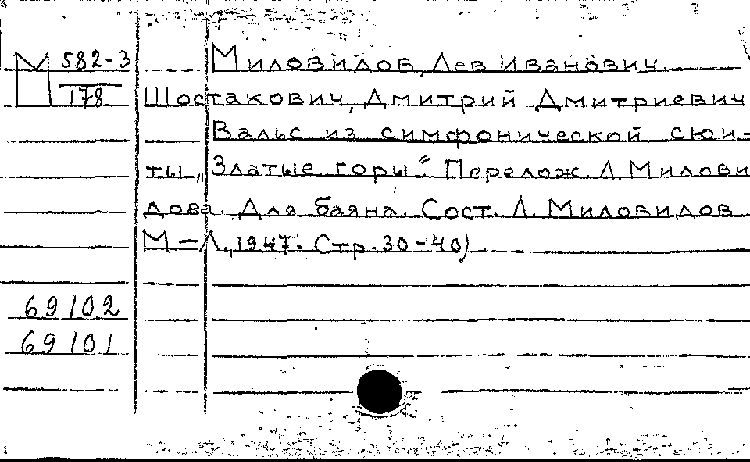 М 582-3 Миловидов, Лев Иванович.
178 Шостакович, Дмитрий Дмитриевич
Вальс из симфонической сюи-
ты „Златые горы“. Перелож. Л. Милови
дова. Для баяна. Сост. Л. Миловидов
М-Л., 1947. Стр. 30-40)
69102
69101